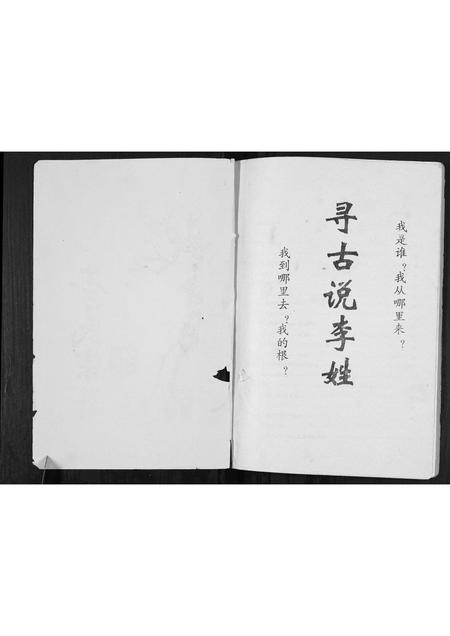 我是谁？我从哪里来？
寻古说李姓
我到哪里去？我的根？